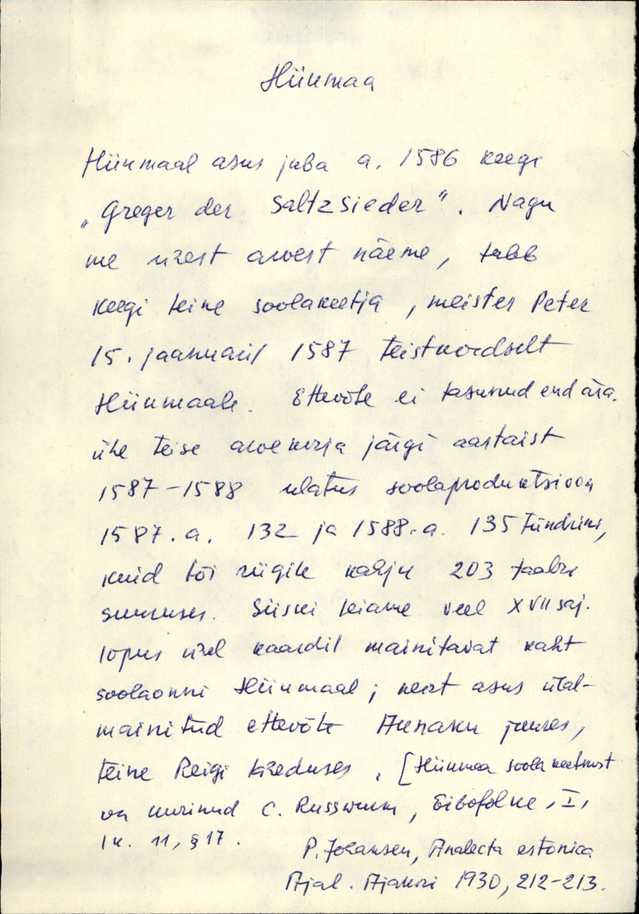 Hiiumaa
Hiiumaal asus juba a. 1586 keegi
„Greger der Saltzsieder". Nagu
me ühest arvest näeme, tuleb
keegi teine soolakeetja, meister Peter
15. jaanuaril 1587 teistkordselt
Hiiumaale. Ettevõte ei tasunud end ära.
ühe teise arvekirja järgi aastaist
1587-1588 ulatus soolaproduktsioon
1587.a. 132 ja 1588.a. 135 tündrini,
kuid tõi riigile kahju 203 taalri
suuruses. Siiski leiame veel XVII saj.
lõpus ühel kaardil mainitavat kaht
soolaonni Hiiumaal; neist asus ülal-
mainitud ettevõte juures,
teine Reigi läheduses. [Hiiumaa soolakeetmist
on uurinud C. Russwurm, Eibofolke, I,
lk. 11, §17.
P. Johansen, Analecta estonica
Ajal. Ajakiri 1930, 212-213.